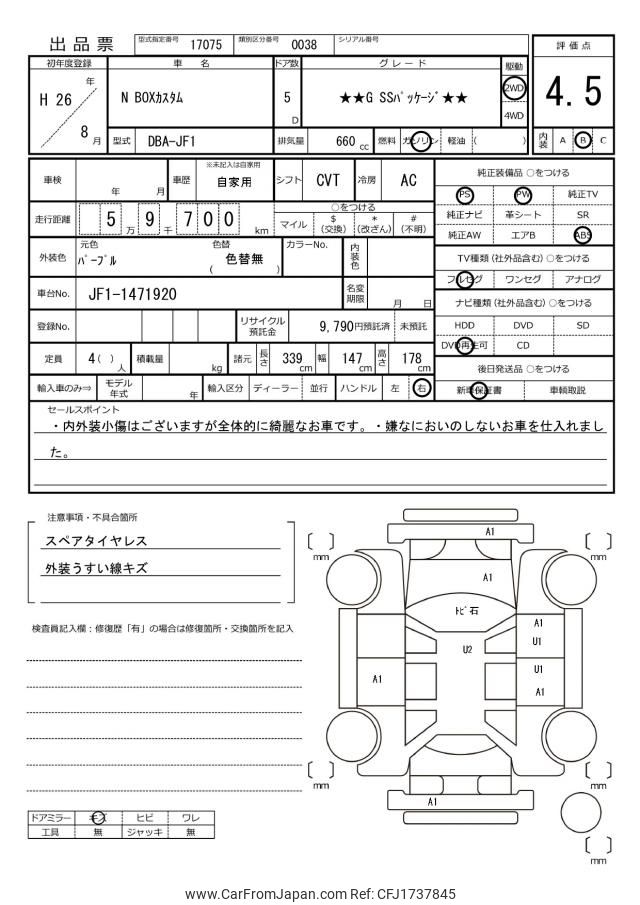 出品票 型式指定番号 17075 類別区分番号 0038 シリアル番号
評価点
4.5
初年度登録 車名 ドア数 グレード 駆動
H 26 年 8 月 N BOXカスタム 5 D ★★G SSパッケージ★★ 2WD
4WD
型式 DBA-JF1 排気量 660 cc 燃料 ガソリン 軽油 ( )
内装 A B C
車検 年 月 車歴 ※未記入は自家用 自家用 シフト CVT 冷房 AC
走行距離 5 万 9 千 7 0 0 km
○をつける
マイル $ (交換) * (改ざん) # (不明)
外装色 元色 パープル 色替 ( 色替無 ) カラーNo. 内装色
車台No. JF1-1471920 名変期限 月 日
登録No. リサイクル預託金 9,790円預託済 未預託
定員 4 ( ) 人 積載量 kg 諸元 長さ 339 cm 幅 147 cm 高さ 178 cm
輸入車のみ⇒ モデル年式 年 輸入区分 ディーラー 並行 ハンドル 左 右
純正装備品 ○をつける
PS PW 純正TV
純正ナビ 革シート SR
純正AW エアB ABS
TV種類(社外品含む) ○をつける
フルセグ ワンセグ アナログ
ナビ種類(社外品含む) ○をつける
HDD DVD SD
DVD再生可 CD
後日発送品 ○をつける
新車保証書 車輌取説
セールスポイント
・内外装小傷はございますが全体的に綺麗なお車です。・嫌なにおいのしないお車を仕入れまし
た。
注意事項・不具合箇所
スペアタイヤレス
外装うすい線キズ
検査員記入欄：修復歴「有」の場合は修復箇所・交換箇所を記入
ドアミラー キズ ヒビ ワレ
工具 無 ジャッキ 無
A1
mm
mm
A1
トビ石
A1
U1
U2
U1
A1
A1
mm
mm
A1
mm
www.CarFromJapan.com Ref: CFJ1737845